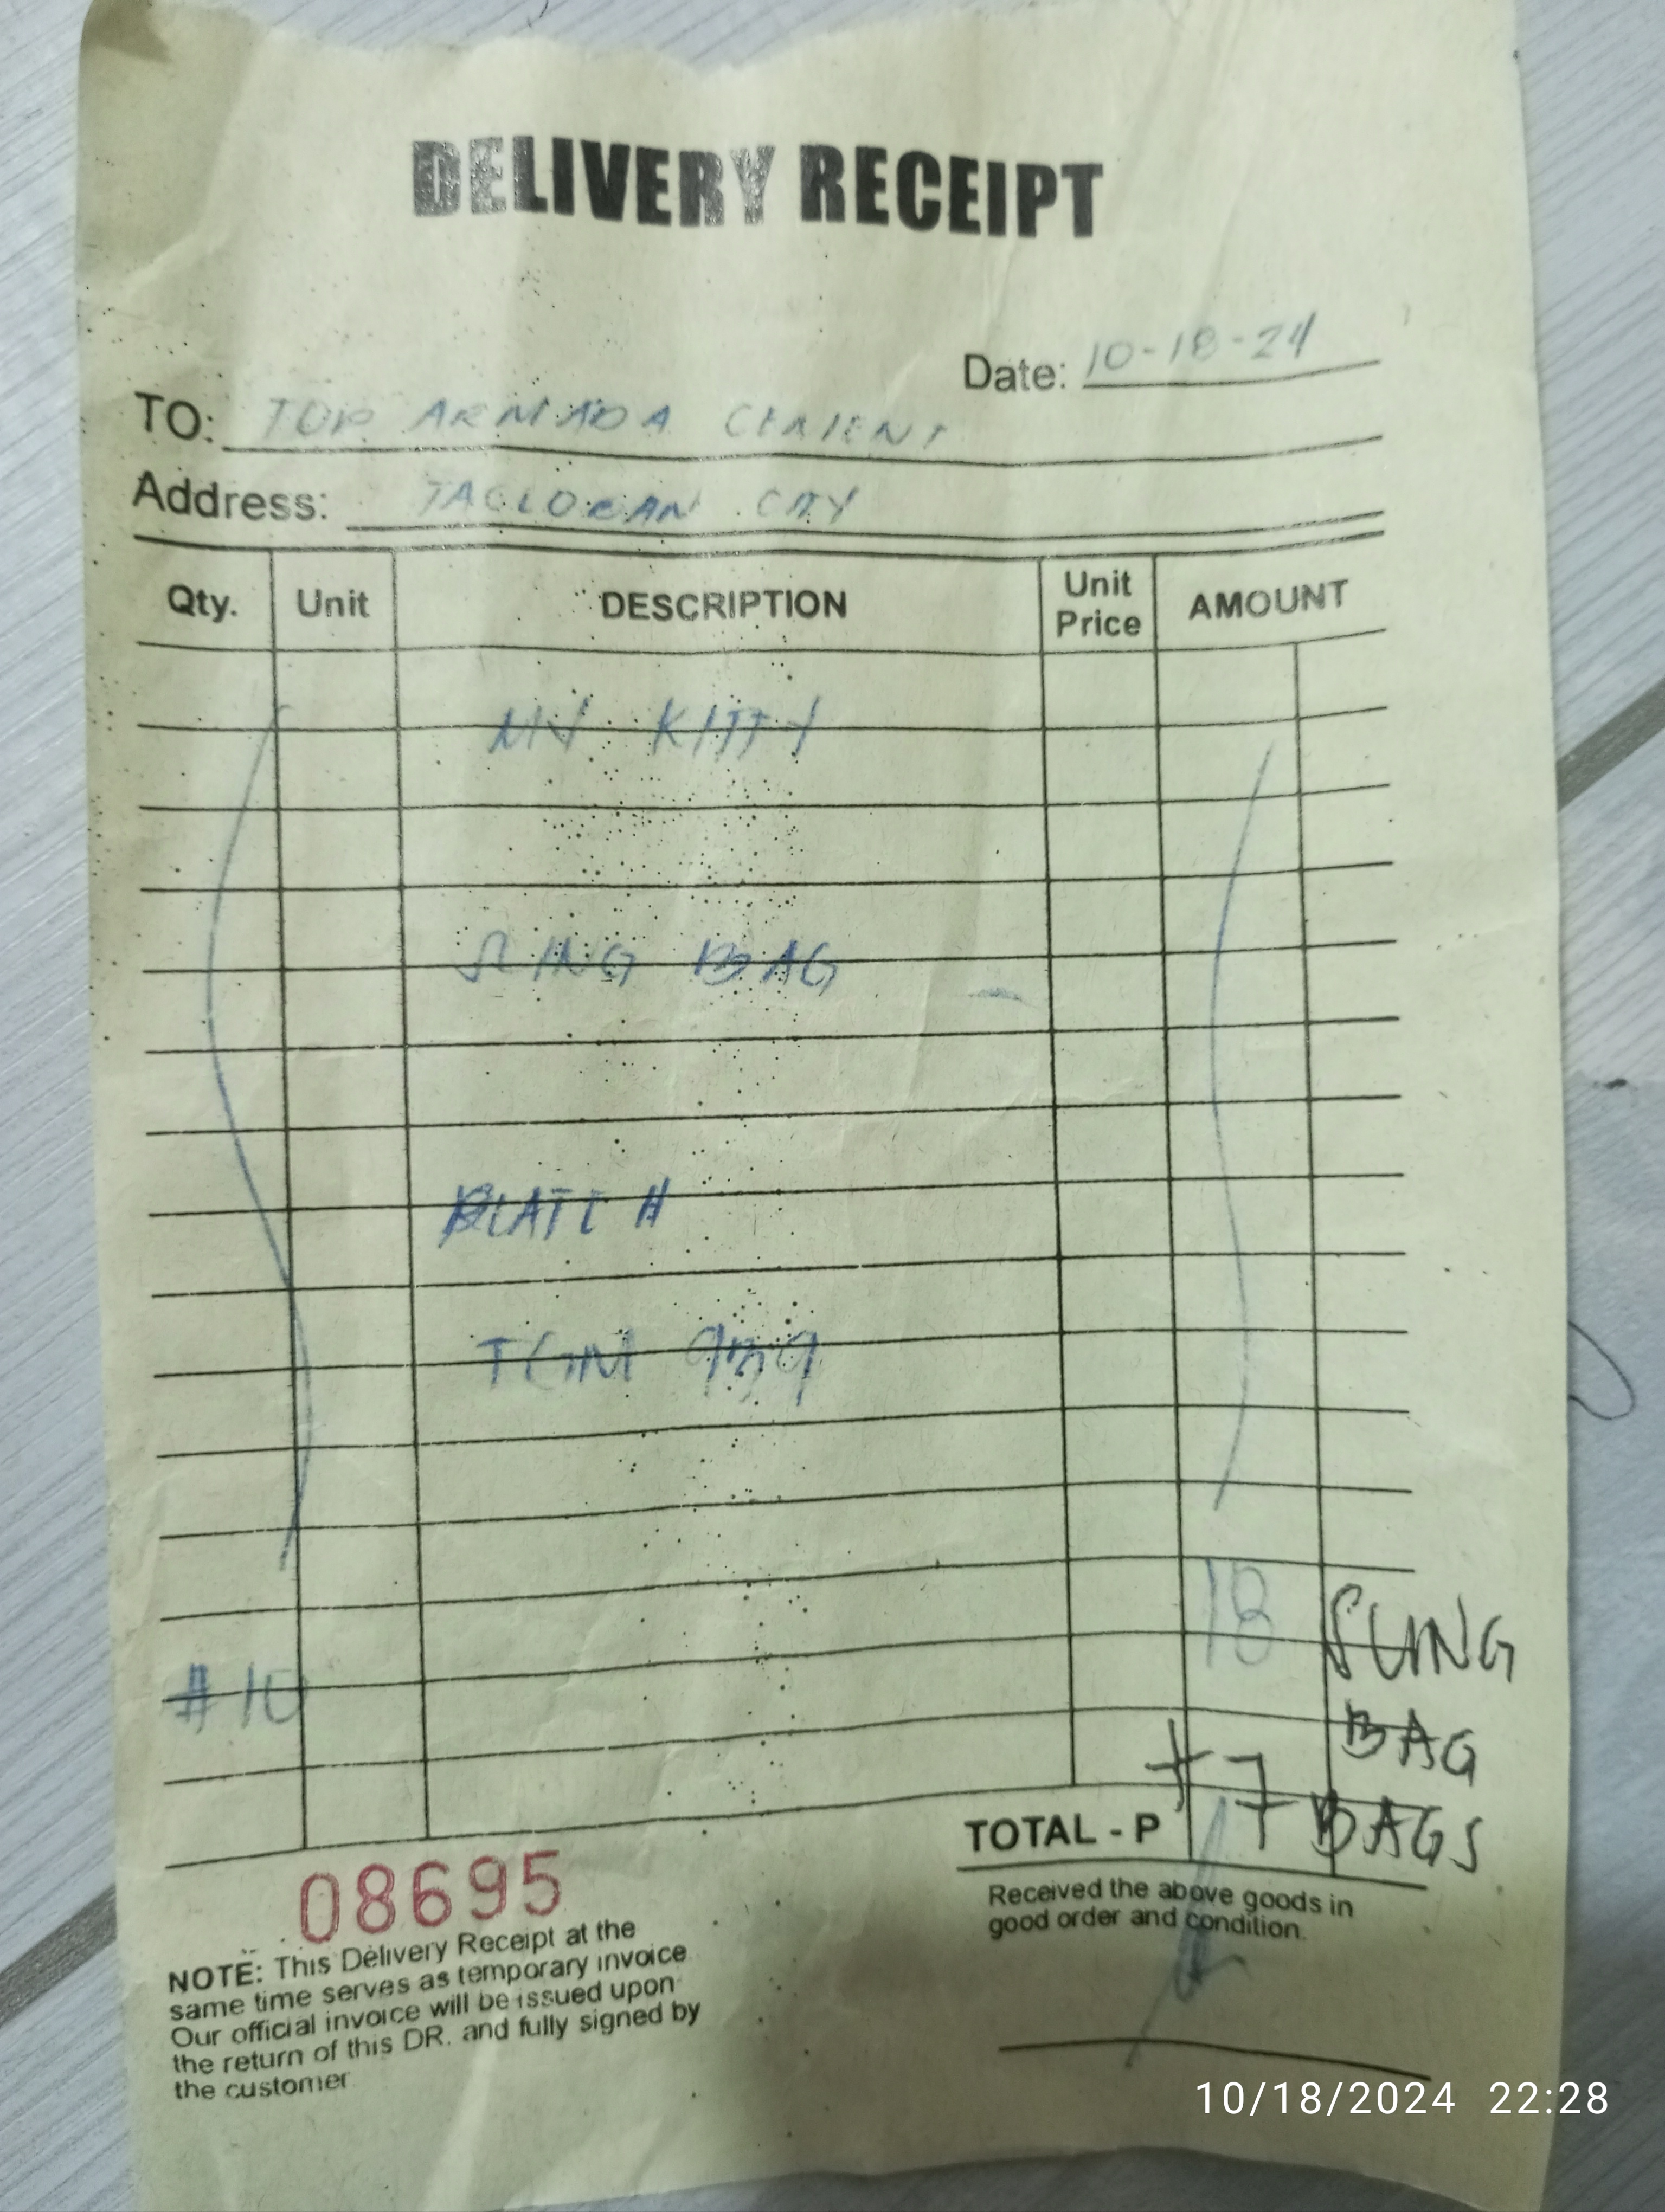 DELIVERY RECEIPT
Date: 10-18-24
TO: TOP ARMADA CEMENT
Address: TACLOBAN CITY
Qty. Unit DESCRIPTION Unit Price AMOUNT
MV KITTY
SLING BAG
PLATE #
939
18 SLING
#10
BAG
+7 BAGS
TOTAL - P
08695
Received the above goods in
good order and condition.
NOTE: This Delivery Receipt at the
same time serves as temporary invoice
Our official invoice will be issued upon
the return of this DR. and fully signed by
the customer
10/18/2024 22:28